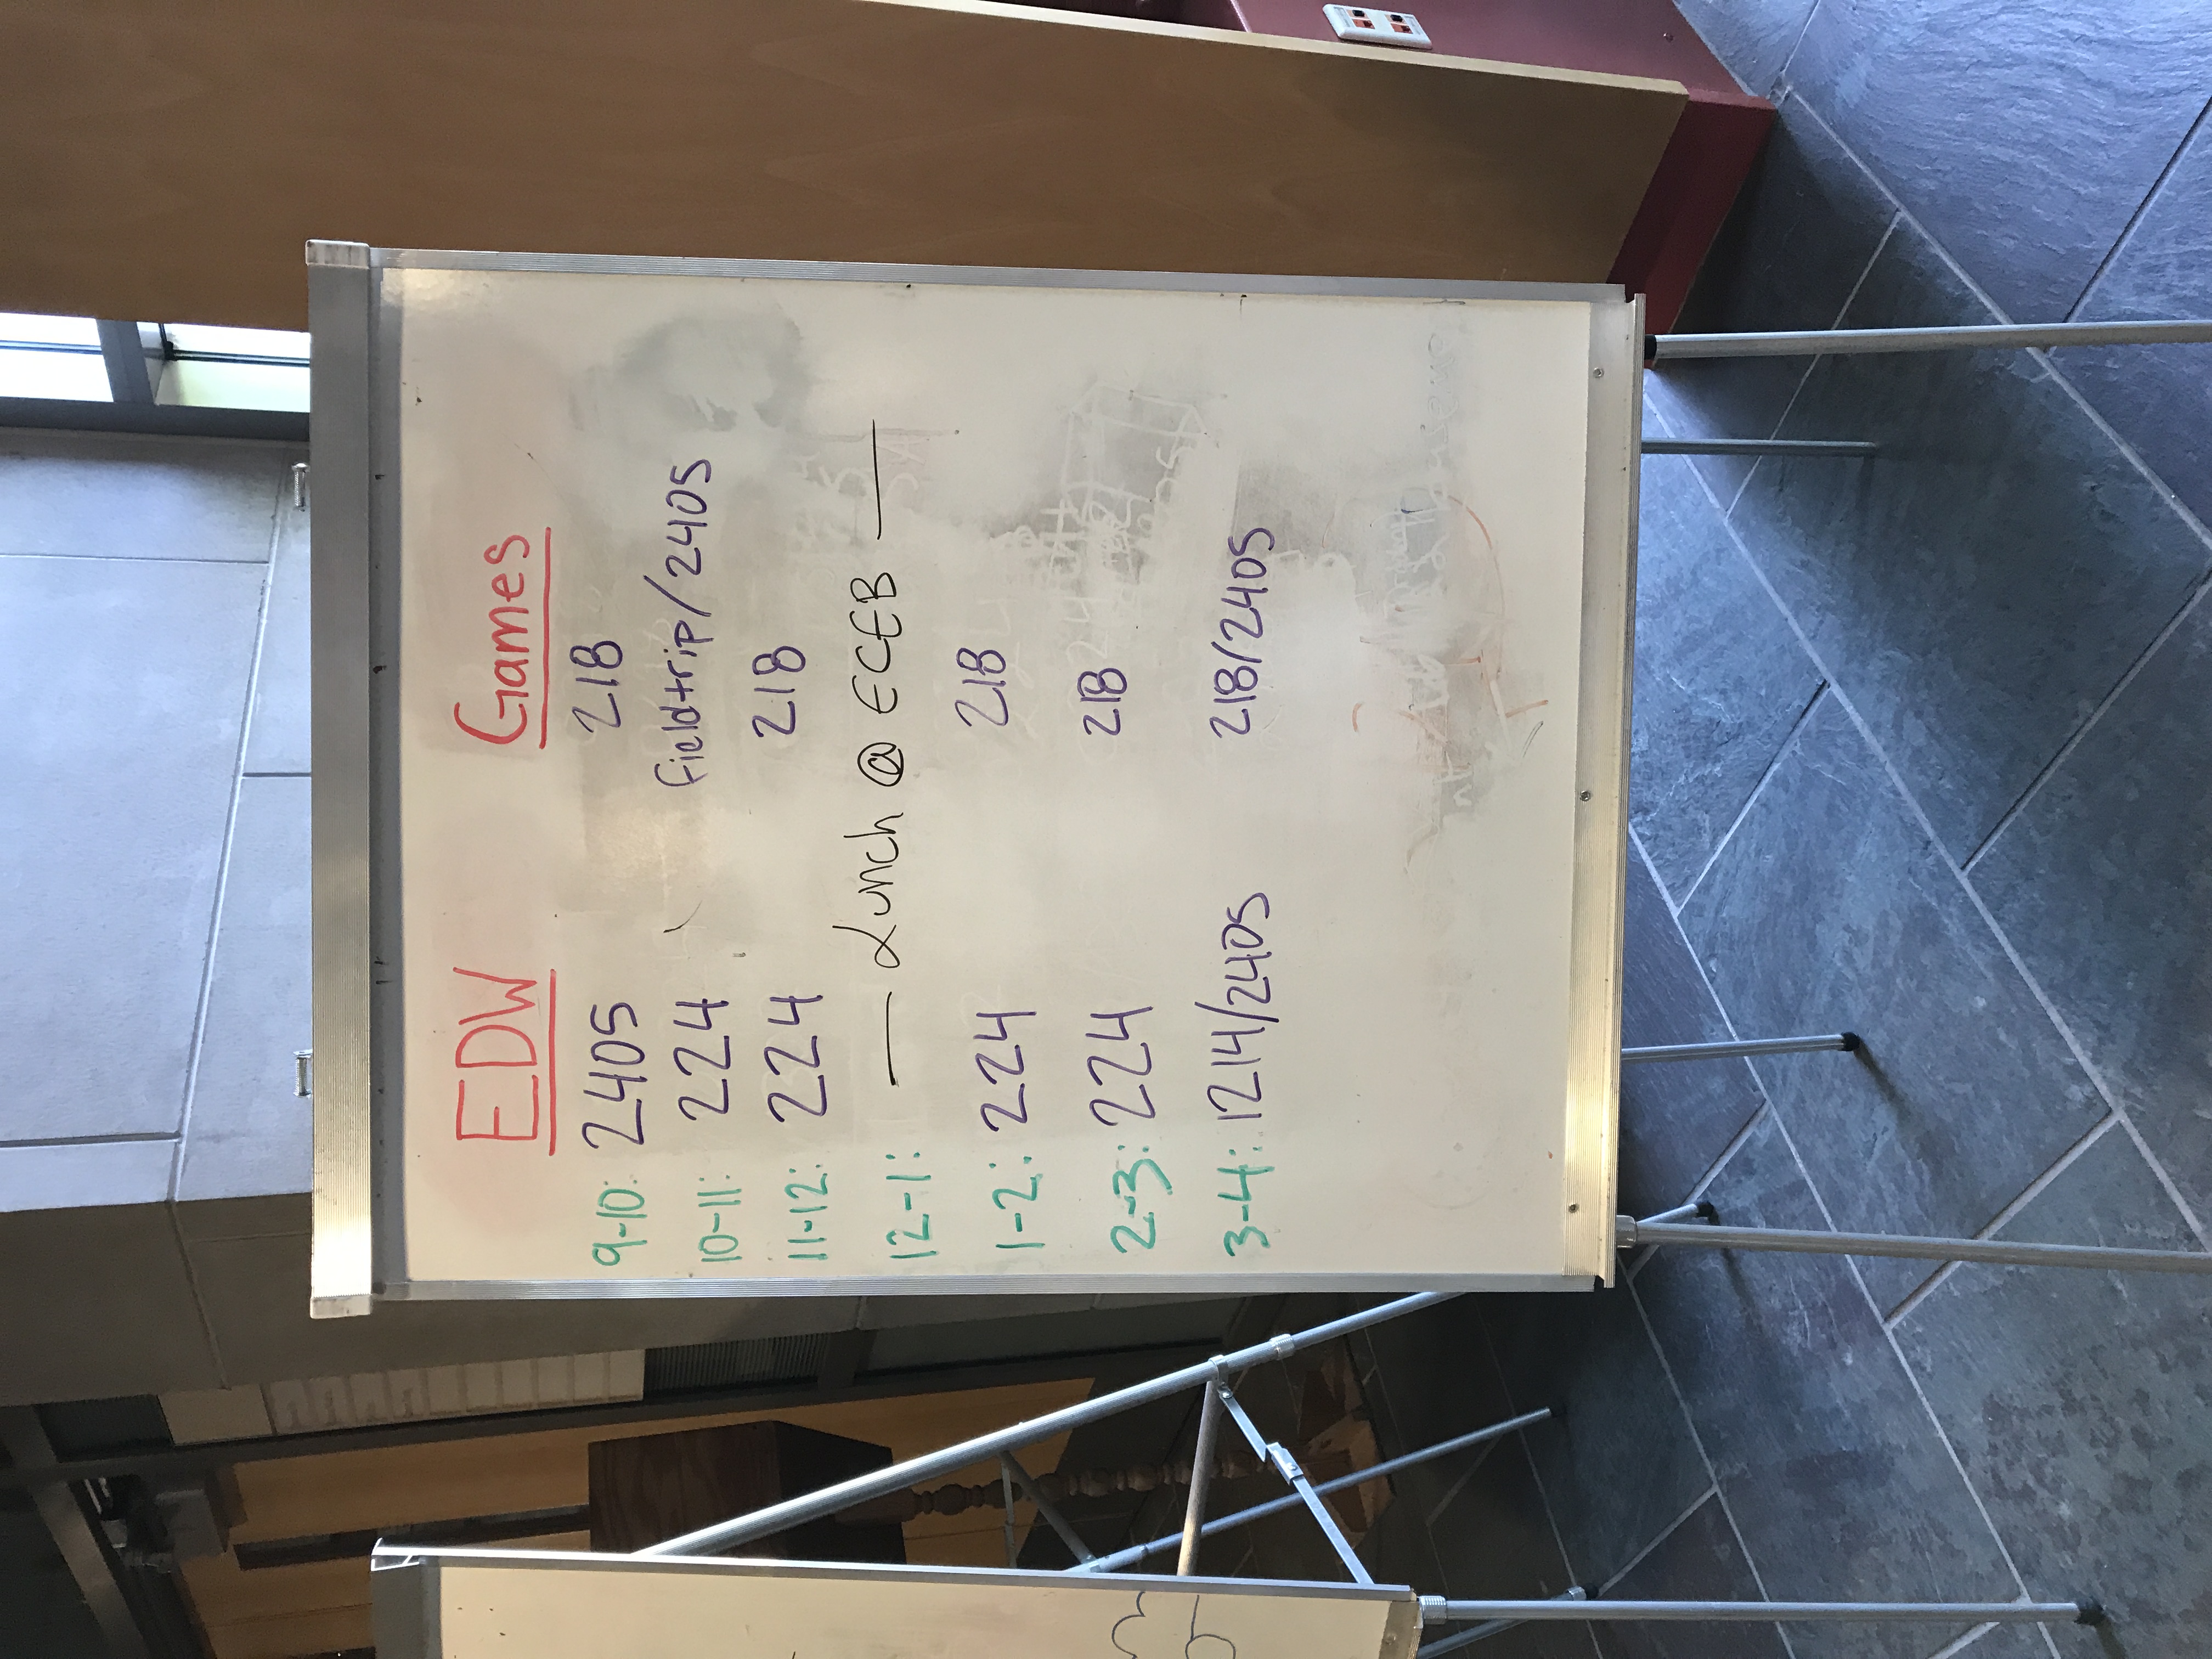 EDW Games
9-10: 2405 218
10-11: 224 fieldtrip/2405
11-12: 224 218
12-1: — Lunch @ ECEB —
1-2: 224 218
2-3: 224 218
3-4: 1214/2405 218/2405